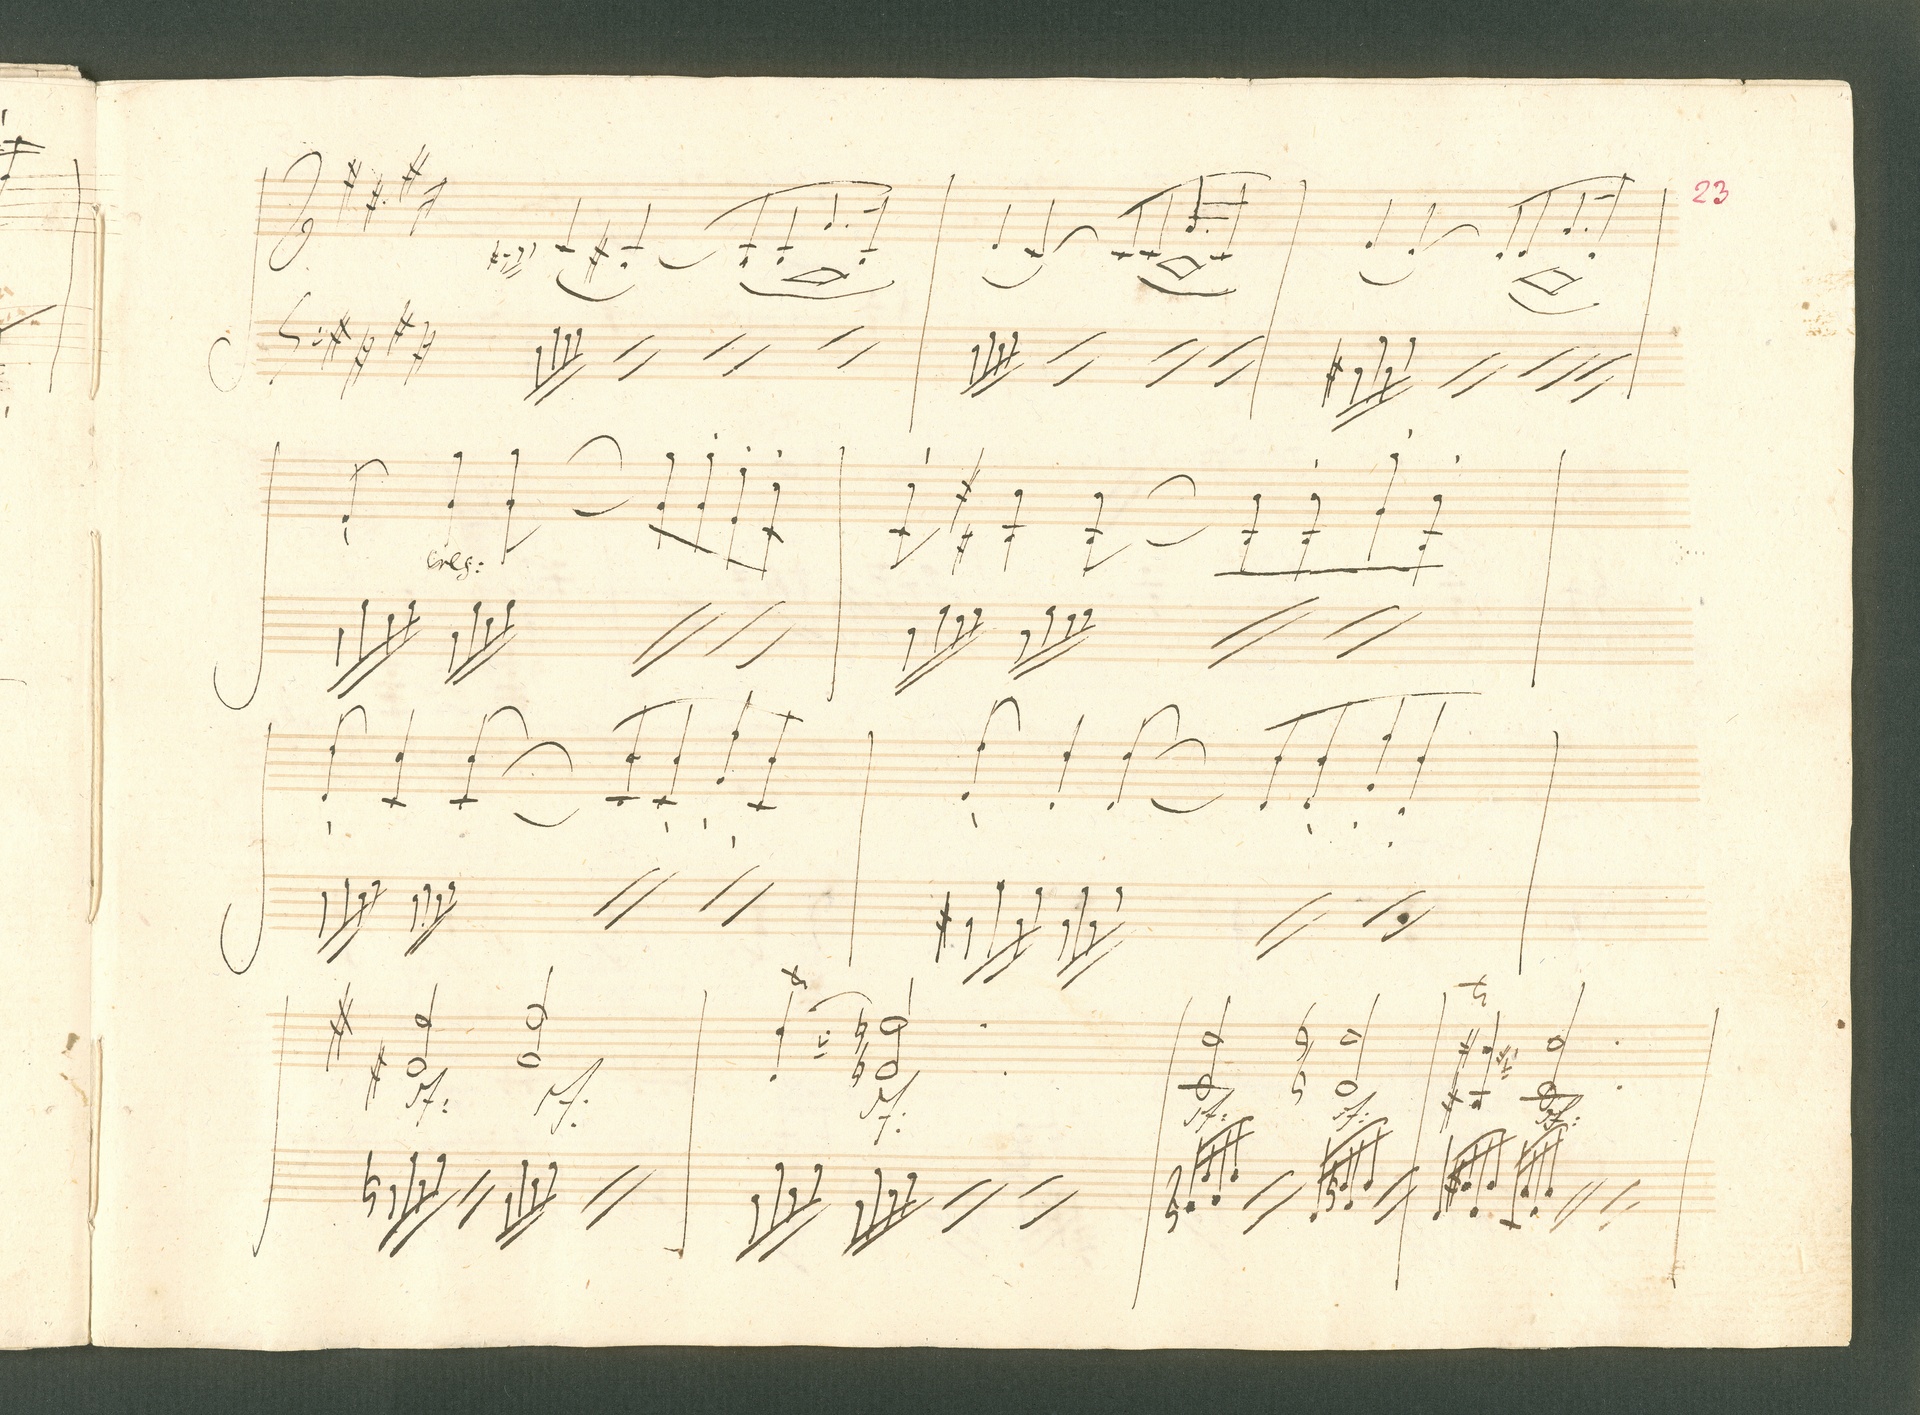 23
sf: sf: sf: sf: sf: sf: